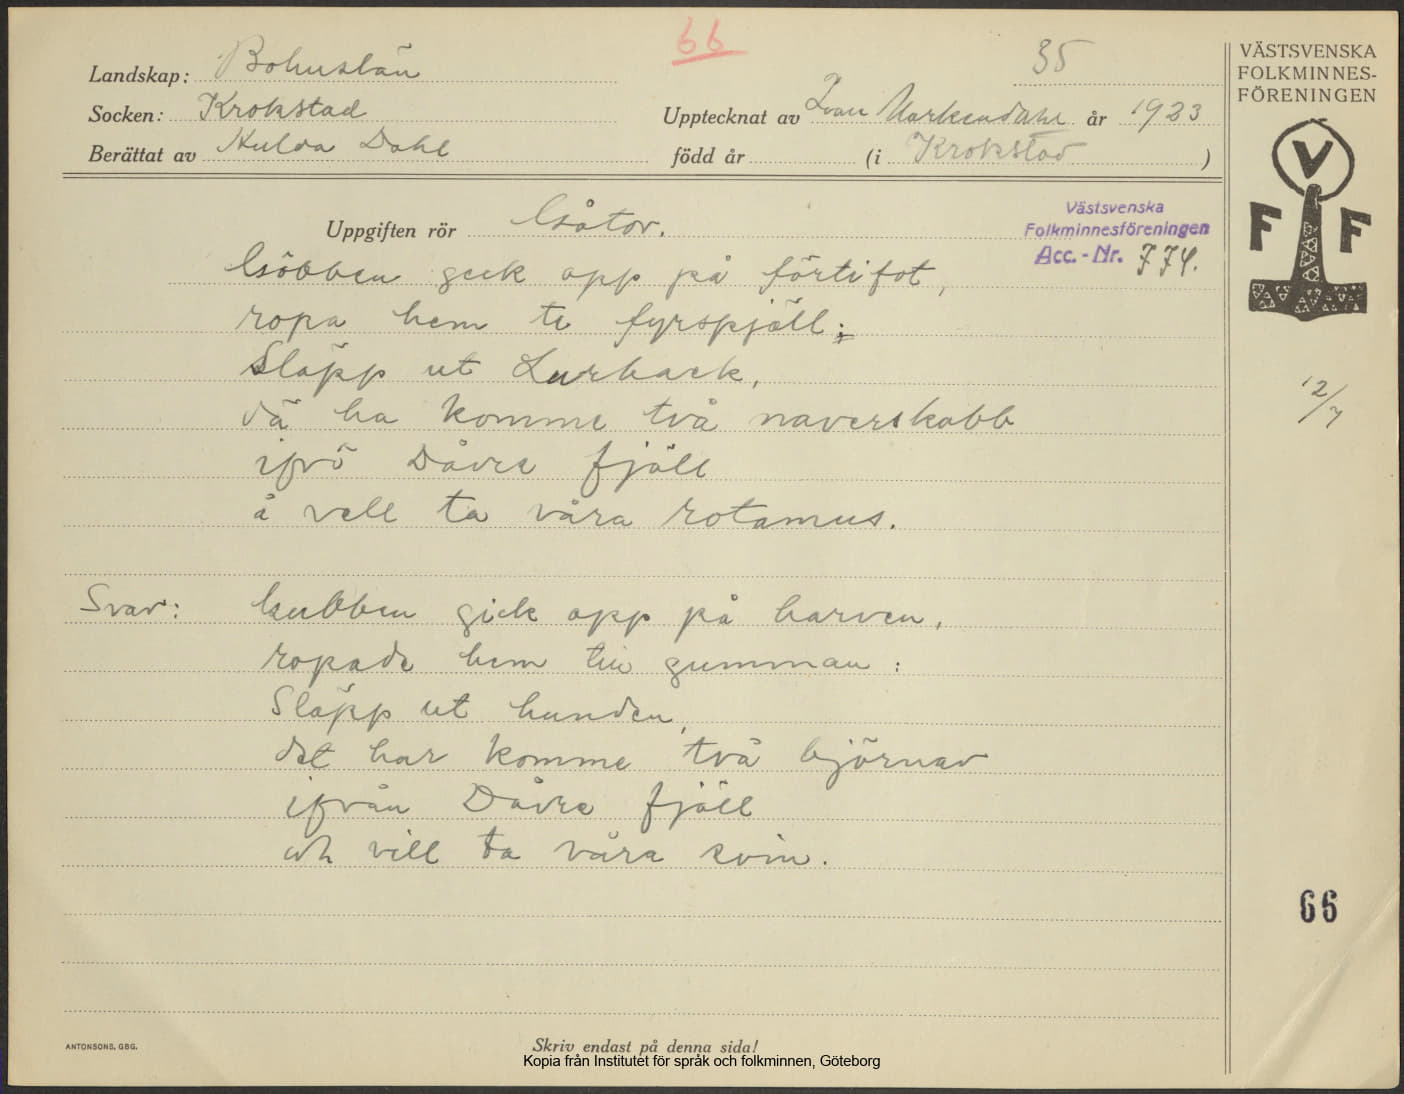 66
35
Landskap: Bohuslän
Socken: Krokstad
Upptecknat av Ivar år 1923
Berättat av Hulda Dahl
född år (i Krokstad)
VÄSTSVENSKA
FOLKMINNES-
FÖRENINGEN
V
F F
Uppgiften rör Gåtor.
Västsvenska
Folkminnesföreningen
Acc.-Nr. 774.
Göbben geck opp på förtifot,
ropa hem te fyrspjäll:
Släpp ut Lurback,
dä ha komme två naverskabb
ifrö Dåvre fjäll
å vell ta våra rotamus.
12/7
Svar: Gubben gick opp på harven,
ropade hem till gumman:
Släpp ut hunden,
det har komme två björnar
ifrån Dåvre fjäll
och vill ta våra svin.
66
ANTONSONS, GBG.
Skriv endast på denna sida!
Kopia från Institutet för språk och folkminnen, Göteborg